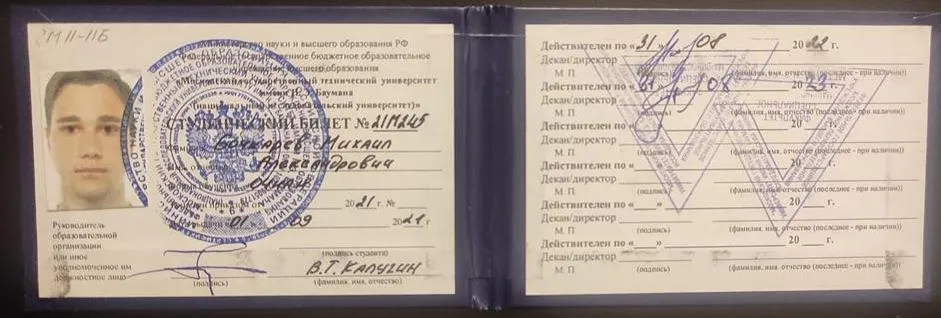 ЭМ11-11Б
Министерство науки и высшего образования РФ
Федеральное государственное бюджетное образовательное
учреждение высшего образования
«Московский государственный технический университет
имени Н. Э. Баумана
(национальный исследовательский университет)»
СТУДЕНЧЕСКИЙ БИЛЕТ № 21М245
Фамилия Бочкарев Михаил
Имя, отчество Александрович
Форма обучения очная
2021 г. №
Дата выдачи «01» 09 2021 г.
Руководитель
образовательной
организации
или иное
уполномоченное им
должностное лицо
(подпись студента)
В.Т. Калугин
(подпись) (фамилия, имя, отчество)
Действителен по «31» 08 2022 г.
Декан/директор
М. П. (подпись) (фамилия, имя, отчество (последнее - при наличии))
Действителен по «31» 08 2023 г.
Декан/директор
М. П. (подпись) (фамилия, имя, отчество (последнее - при наличии))
Действителен по « » 20 г.
Декан/директор
М. П. (подпись) (фамилия, имя, отчество (последнее - при наличии))
Действителен по « » 20 г.
Декан/директор
М. П. (подпись) (фамилия, имя, отчество (последнее - при наличии))
Действителен по « » 20 г.
Декан/директор
М. П. (подпись) (фамилия, имя, отчество (последнее - при наличии))
Действителен по « » 20 г.
Декан/директор
М. П. (подпись) (фамилия, имя, отчество (последнее - при наличии))